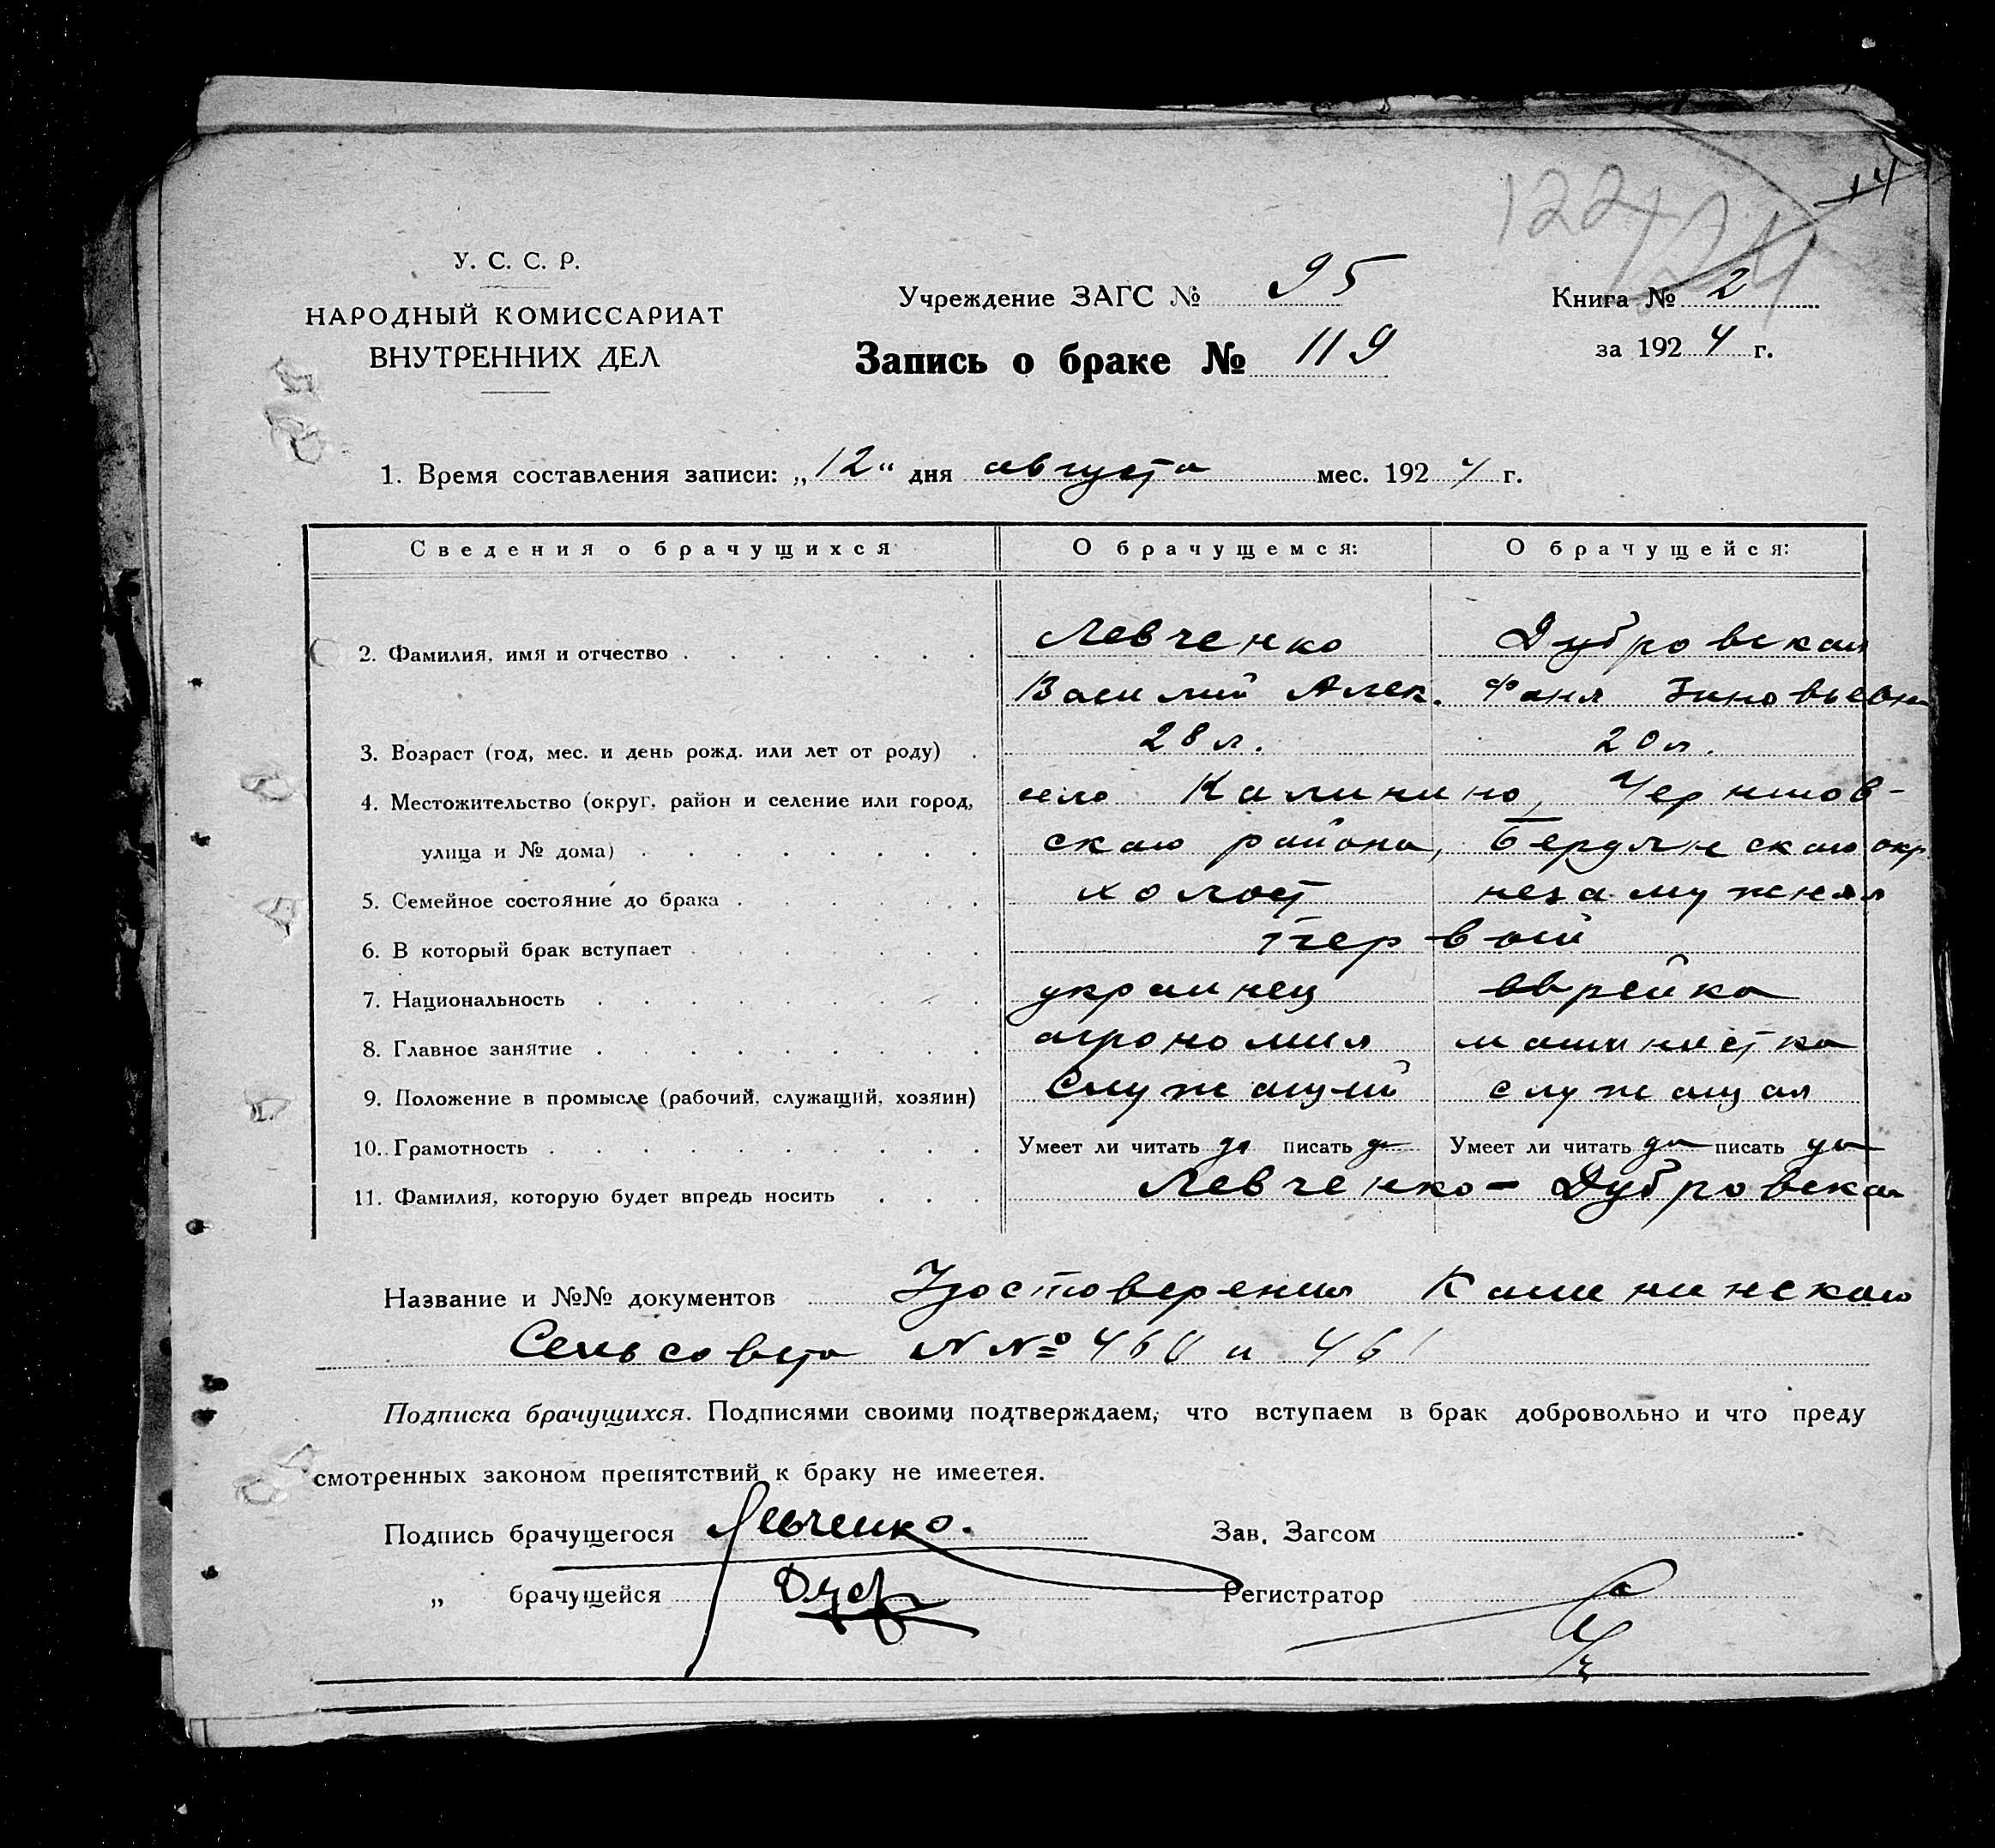 14
122
124
У. С. С. Р.
НАРОДНЫЙ КОМИССАРИАТ
ВНУТРЕННИХ ДЕЛ
Учреждение ЗАГС № 95
Запись о браке № 119
Книга № 2
за 1924 г.
1. Время составления записи: „12“ дня августа мес. 1924 г.
Сведения о брачущихся О брачущемся: О брачущейся:
2. Фамилия, имя и отчество Левченко Дубровская
Василий Алек. Фаня Зиновьевна
3. Возраст (год, мес. и день рожд. или лет от роду) 28 л. 20 л.
4. Местожительство (округ, район и селение или город, село Калинино, Чернигов-
улица и № дома) ского района, Бердянского окр
5. Семейное состояние до брака холост незамужняя
6. В который брак вступает Первый
7. Национальность украинец еврейка
8. Главное занятие агрономия машинистка
9. Положение в промысле (рабочий, служащий, хозяин) Служащий служащая
10. Грамотность Умеет ли читать да писать да Умеет ли читать да писать да
11. Фамилия, которую будет впредь носить Левченко - Дубровская
Название и №№ документов Удостоверения Калининского
Сельсовета N№ 460 и 461
Подписка брачущихся. Подписями своими подтверждаем, что вступаем в брак добровольно и что преду
смотренных законом препятствий к браку не имеетея.
Подпись брачущегося Левченко. Зав. Загсом
„ брачущейся Дубр Регистратор